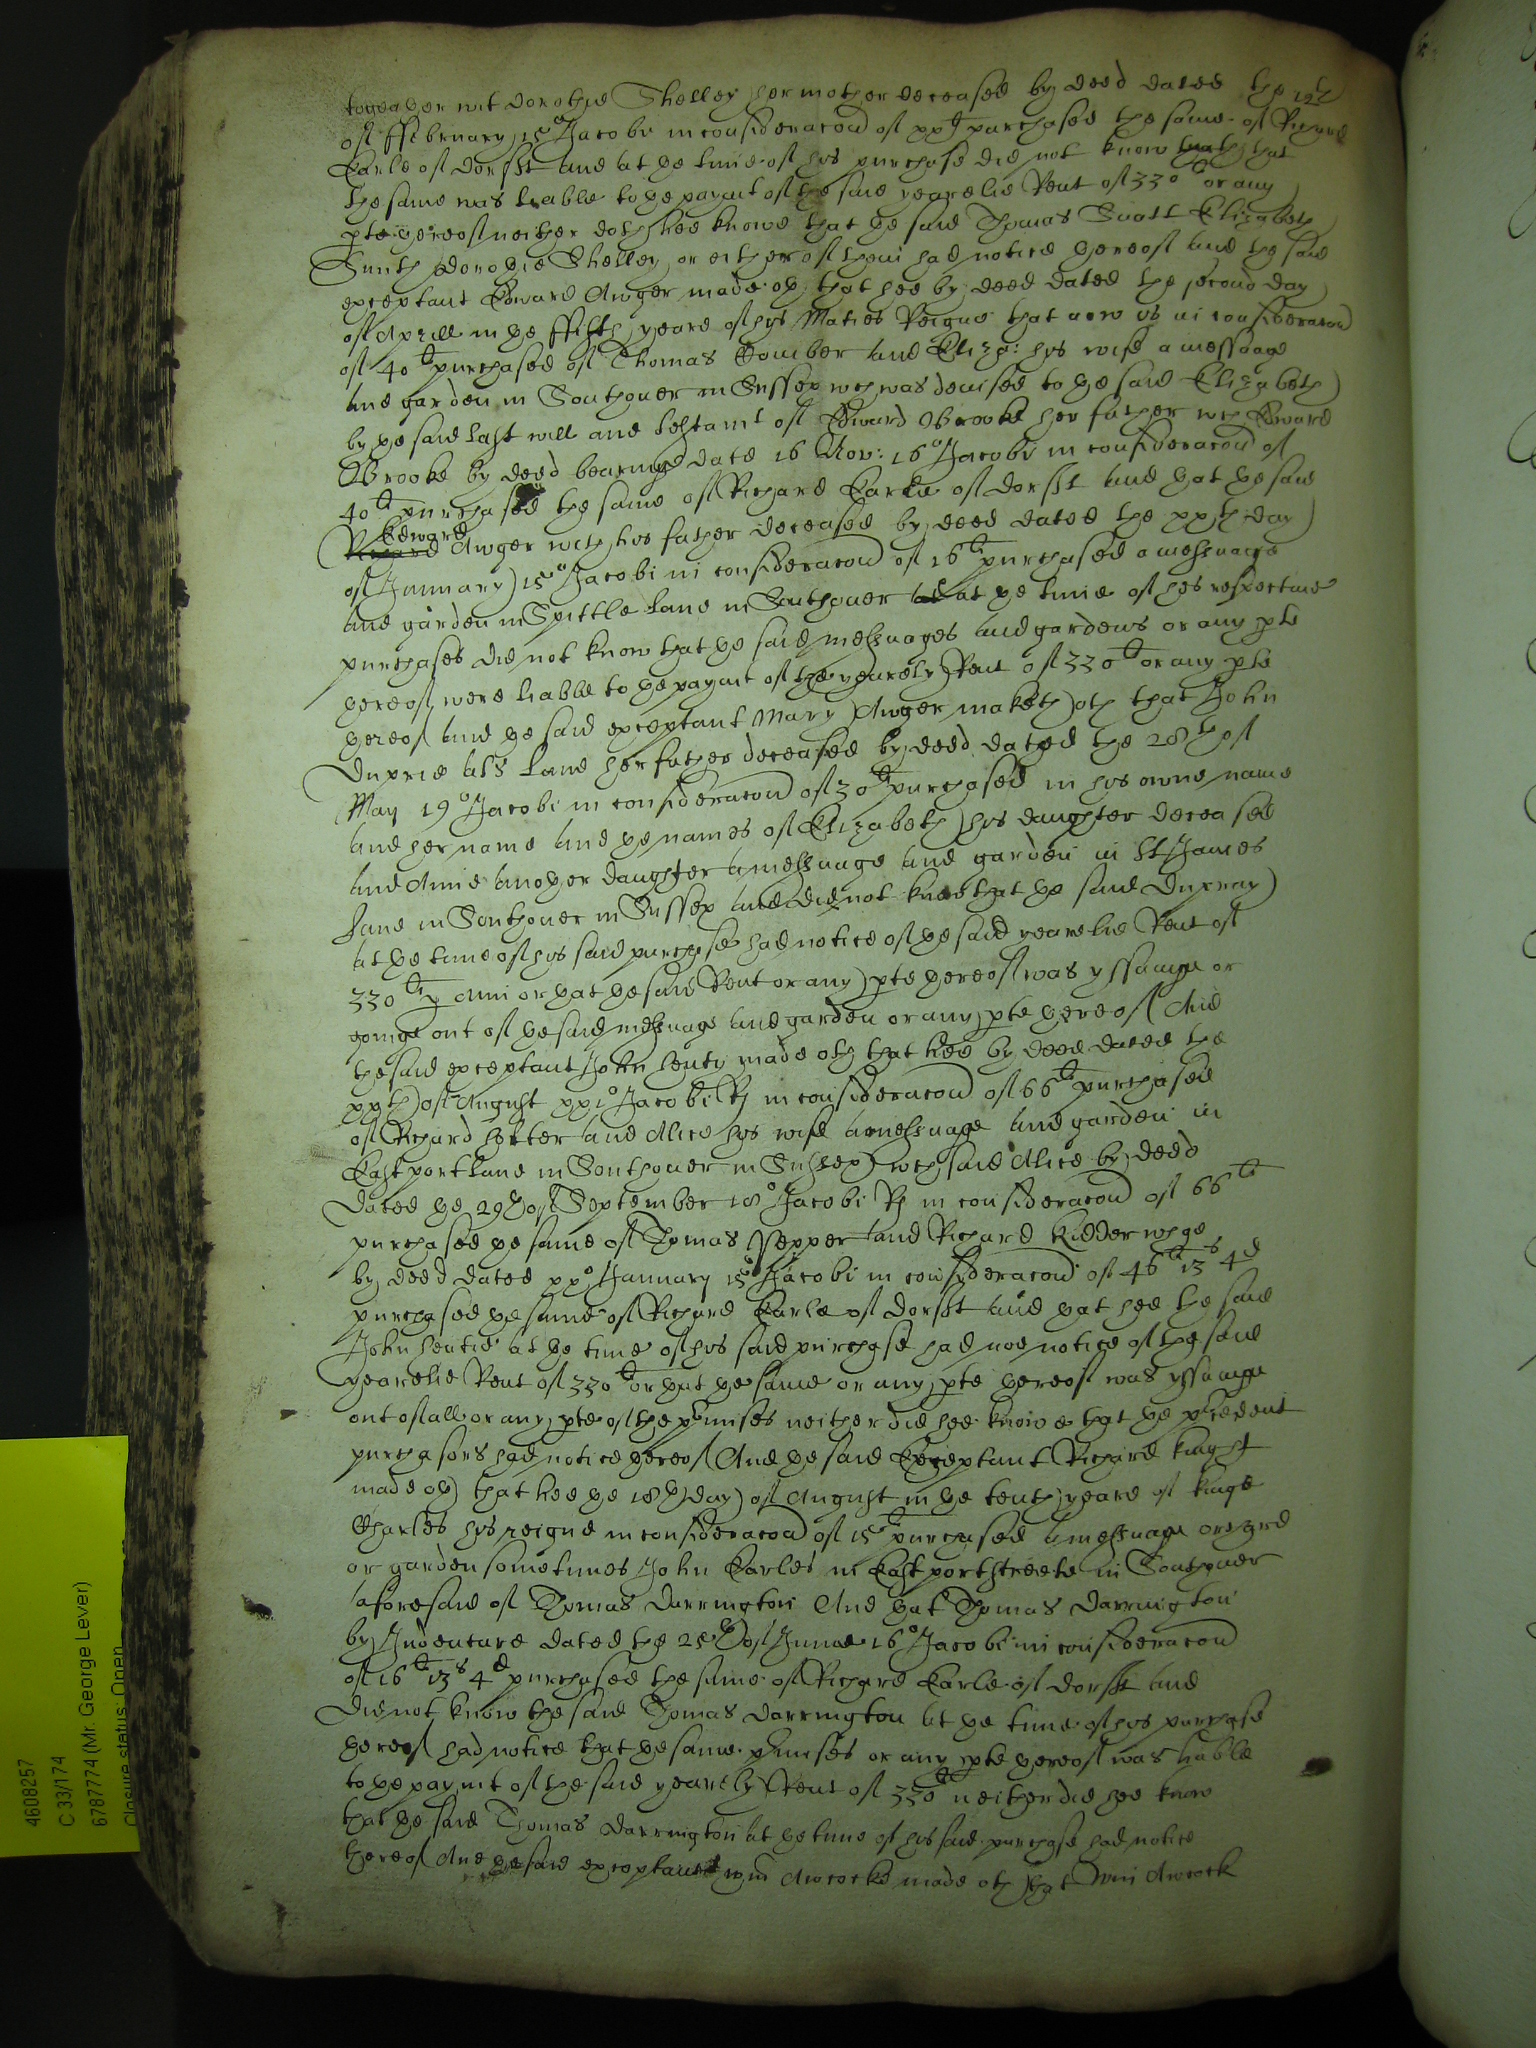 togeather wth Dorothie Shelley her mother deceased by deed dated the 12th
of ffebruary 15o Jacobi in consideracon of xxli purchased the same of Richard
Earle of Dorsett and at ye time of his purchase did not know that
the same was lyable to ye paymt of the said yearelie Rent of 330li or any
pte thereof neither doth hee knowe that ye said Thomas Elizabeth
Smith Dorothie Shelley or either of them had notice thereof And the said
exceptant Edward Awger made oth that hee by deed dated the second day
of Aprill in ye ffifth yeare of his Maties Reigne that now is in consideracon
of 40li purchased of Thomas Comber and Eliza: his wife a messuage
and garden in Southover in Sussex wch was devised to ye said Elizabeth
by ye said last will and testamt of Edward Brooke her father wch Edward
Brooke by deed bearinge date 16 Nov: 16o Jacobi in consideracon of
40li purchased the same of Richard Earle of Dorsett And yat ye said
Edward
Richard Awger wch his father deceased by deed dated the xxth day
of January 15o Jacobi in consideracon of 16li purchased a messuage
and garden in Spittle lane in Southover at ye time of his respective
purchases did not know that ye said messuages and gardens or any pte
thereof were lyable to ye paymt of the yearely Rent of 330li or any pte
thereof And ye said exceptant Mary Awger maketh oth that John
Duprie als Lane her father deceased by deed dated the 28th of
May 19o Jacobi in consideracon of 30li purchased in his owne name
and her name and ye names of Elizabeth his daughter deceased
and Anne another daughter a messuage and garden in St James
lane in Southover in Sussex and did not know that ye said Dupray
at ye time of his said purchase had notice of ye said yearelie Rent of
330li p Ann or yat ye said Rent or any pte thereof was yssuinge or
goinge out of ye said messuage and garden or any pte thereof And
the said exceptant John henty made oth that hee by deed dated the
xxth of August xxio Jacobi R in consideracon of 66li purchased
of Richard and Alice his wife a messuage and garden in
Eastport lane in Southover in Sussex wch said Alice by deed
dated ye 29th of September 18o Jacobi R in consideracon of 66li
purchased ye same of Thomas Pepper and Richard Kidder
by deed dated xxo January 15o Jacobi in consideracon of 46li 13s 4d
purchased ye same of Richard Earle of Dorsett and yat hee the said
John hentie at ye time of his said purchase had noe notice of the said
yearelie Rent of 330li or yat ye same or any pte thereof was yssuinge
out of all or any pte of the pmises neither did hee knowe that ye pcedent
purchasors had notice thereof And ye said Exceptant Richard Knight
made oth that hee ye 18th day of August in ye tenth yeare of Kinge
Charles his reigne in consideracon of 15li purchased a messuage
or garden sometimes John Earles in Eastport streete in Southover
aforesaid of Thomas Darrington And yat Thomas Darrington
by Indenture dated the 25th of June 16o Jacobi in consideracon
of 16li 13s 4d purchased the same of Richard Earle of Dorsett and
did not know the said Thomas Darrington at ye time of his purchase
thereof had notice that ye same pmises or any pte thereof was liable
to ye paymt of the said yearely Rent of 330li neither did hee know
that ye said Thomas Darrington at ye time of his said purchase had notice
thereof And ye said exceptant Wm Awcocke made oth that Wm Awcock
4608257
C 33/174
6787774 (Mr. George Lever)
Closure status: Open